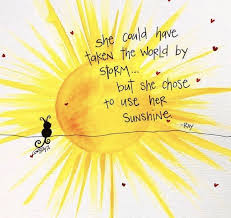 she could have
taken the world by
STORM...
but she chose
to use her
SUNSHINE.
-RAY